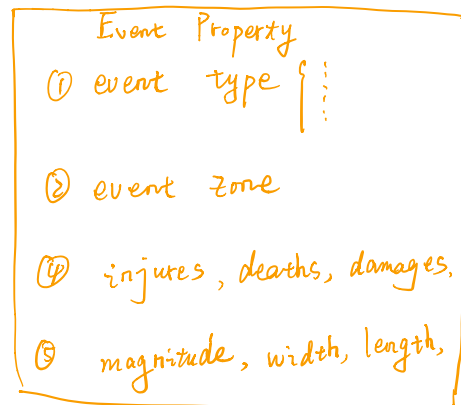 Event Property
① event type { ⋮
② event zone
④ injures, deaths, damages,
⑤ magnitude, width, length,